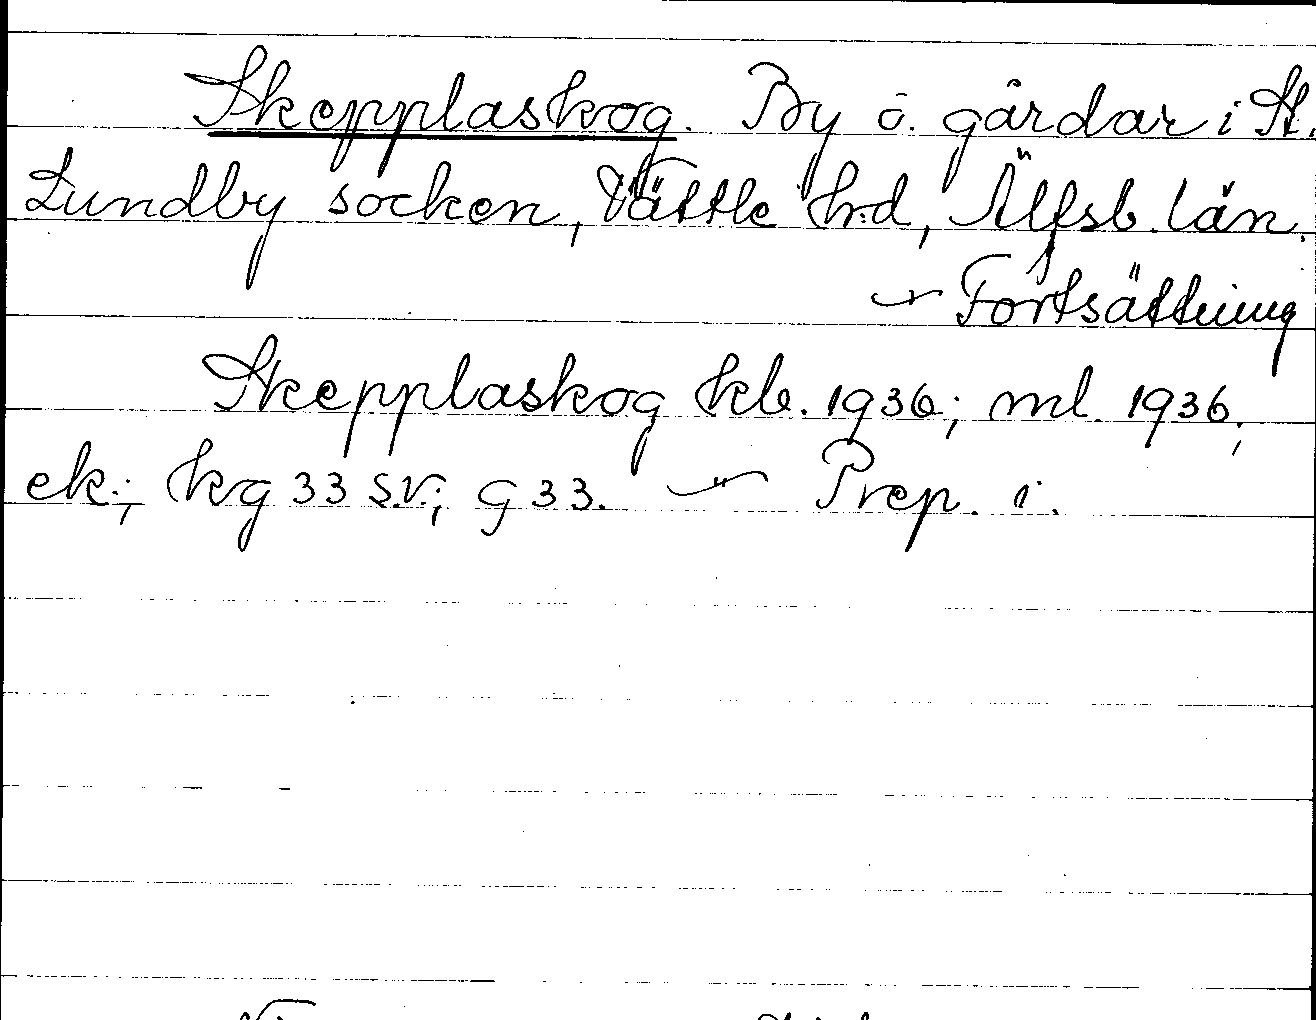 Skepplaskog. By o. gårdar i St.
Lundby socken, Vättle hd, Älfsb. län.
— Fortsättning
Skepplaskog kb. 1936; ml. 1936;
ek.; kg 33 SV; g 33. — Prep. i.